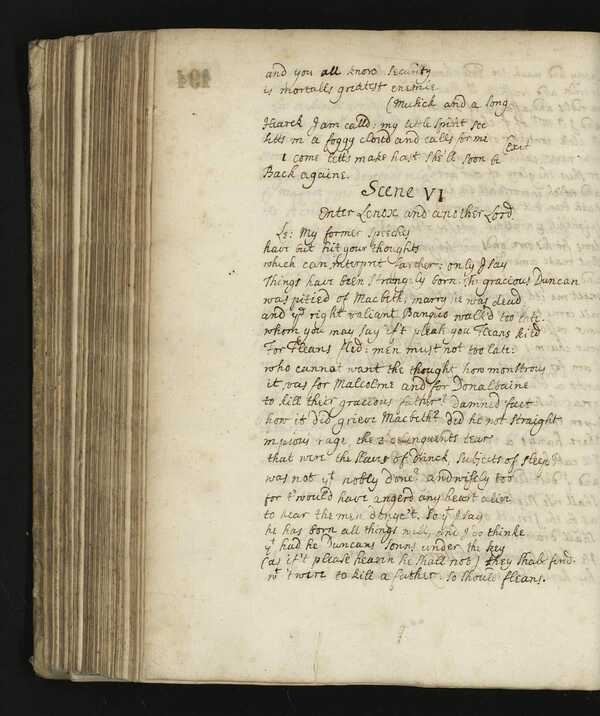 and you all know security
is mortalls greatest enemie
(Musick and a song
Hearck I am calld: my little spirit see
sitts in a foggy cloud and calls for me
Exit
1 come letts make hast she'll soon be
Back againe.
Scene VI
Enter Lenox and another Lord.
Le: My former speeches
have but hit your thoughts
which can interpret farther: only I say
Things have been strangely born. The gracious Duncan
was pitied of Macbeth, marry he was dead
and ye right valiant Banquo walk'd too late
whom you may say if't pleas you Fleans kild
For Fleans fled: men must not too late:
who cannot want the thought how monstrous
it was for Malcolme and for Donalbaine
to kill their gracious father? damned fact
how it did grieve Macbeth? did he not straight
in pious rage the 2 delinquents tear
that were the slaves of drinck, subjects of sleep?
was not yt nobly done? and wisely too
for t'would have angerd any heart alive
to hear the men deny't. So yt I say
he has born all things well, and I do thinke
yt had he Duncans sonns under the key
(as if't please heavin he shall not) they should find
wt 't were to kill a father. So should Fleans.